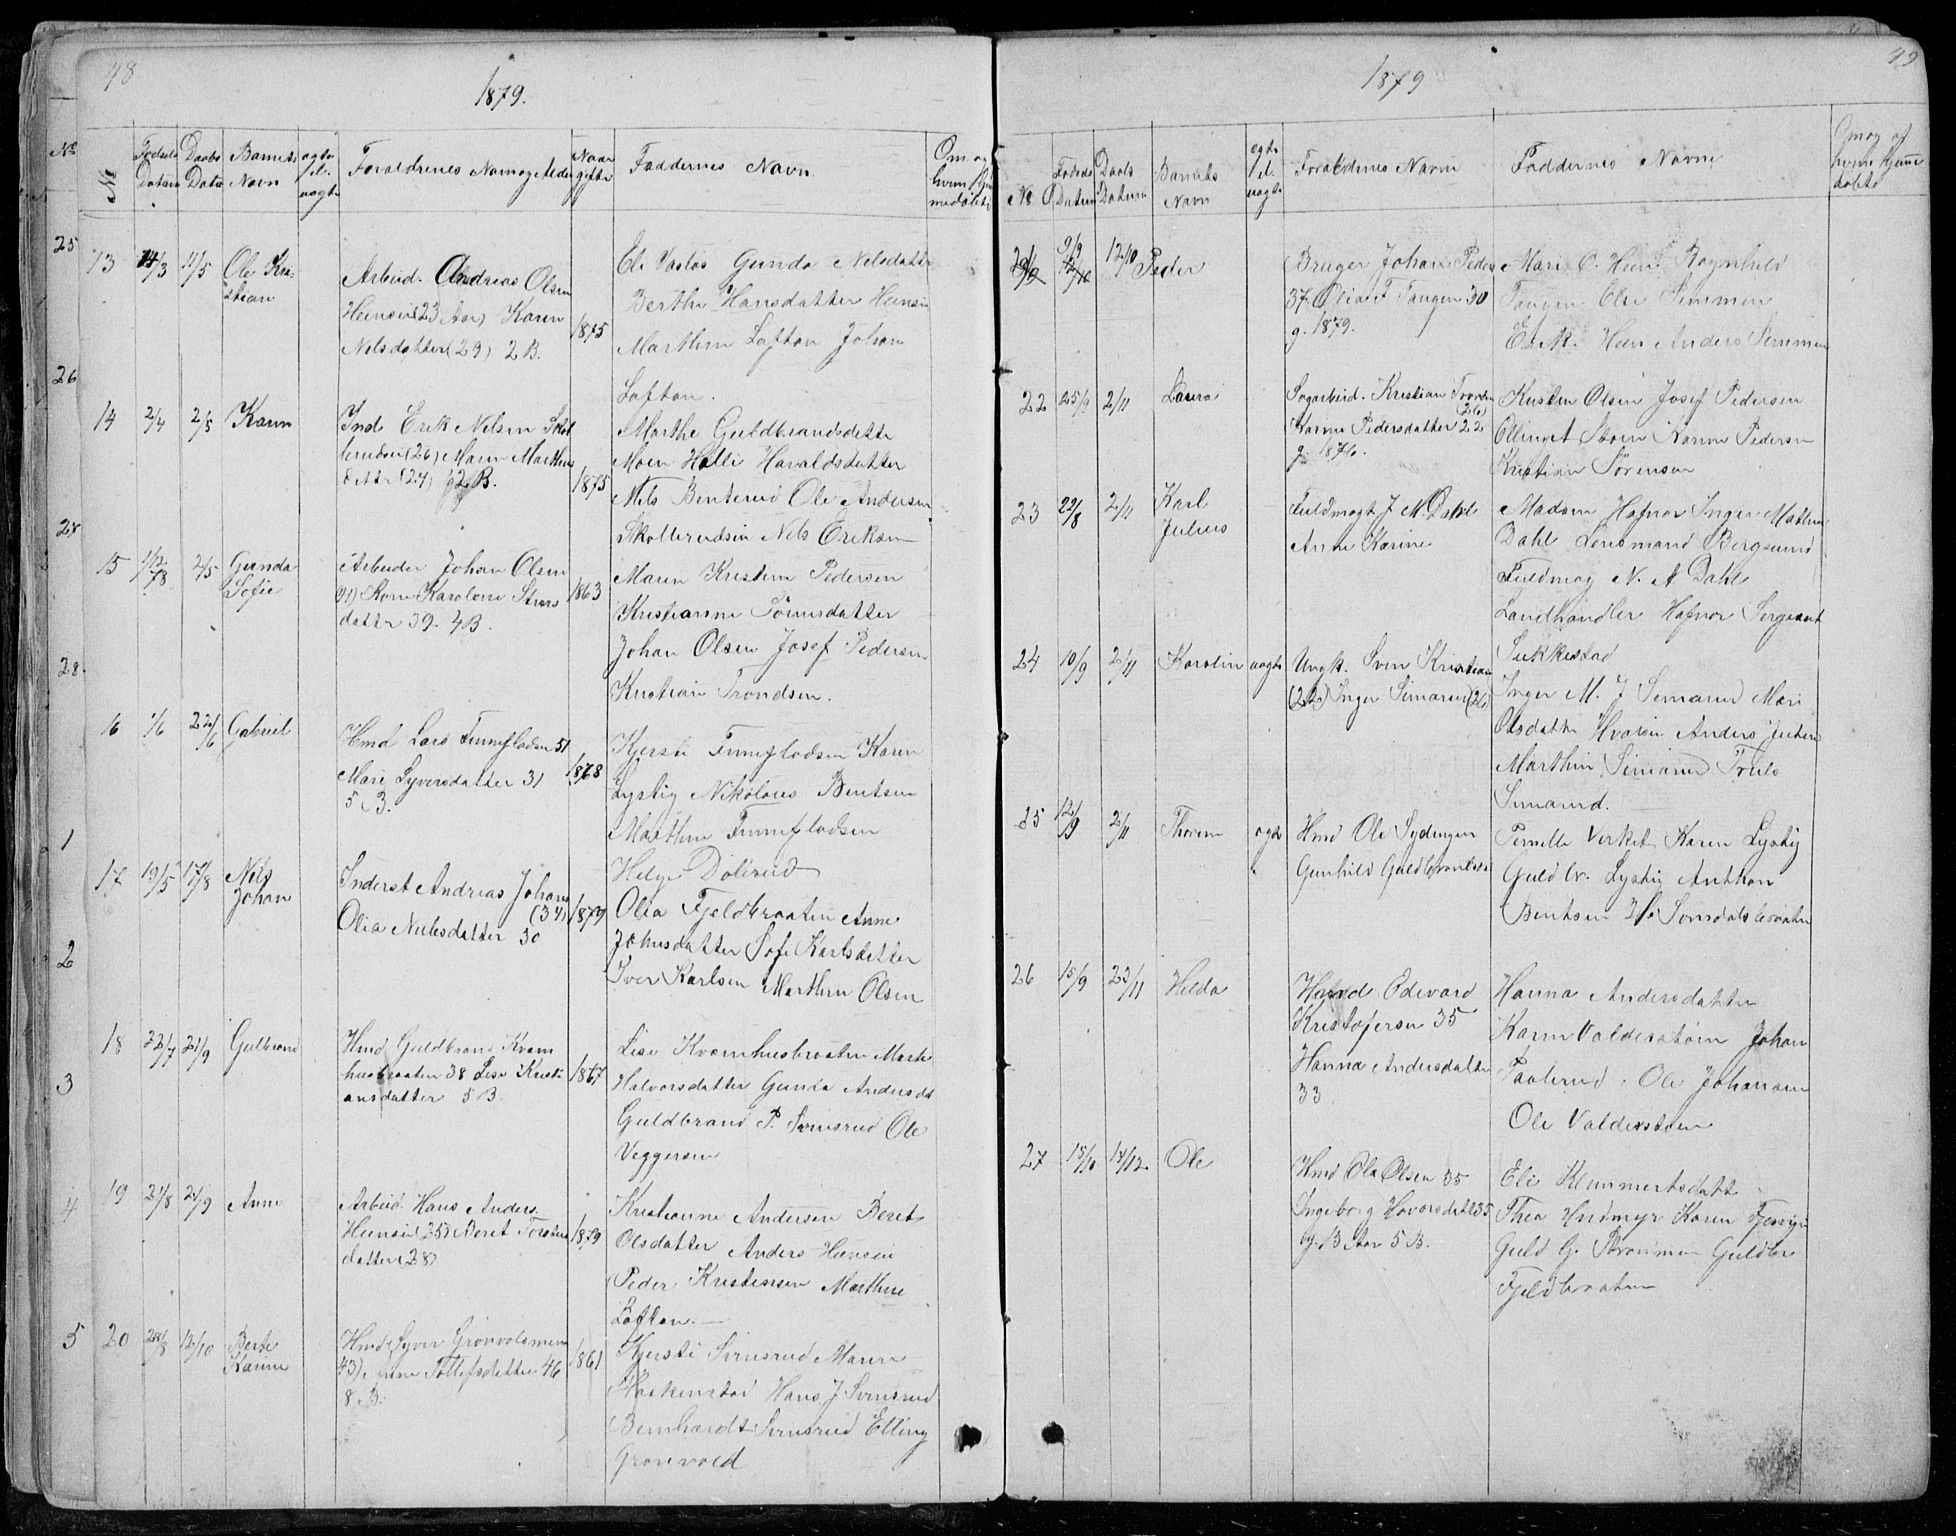 48
1879.
No
Fødsels Datum
Daabs Data
Barnets Navn
ægte el. uægte
Forældrenes Navn og Alder
Naar gifte
Faddernes Navn
Om og hvem hjemmedøbte
25
26
27
28.
1
2
3
4
5
13 14/3 11/5 Ole Kristian
Arbeid. Andreas Olsen
Heensei (23 Aar) Karen
Nilsdatter (29) 2 B.
1875
Eli Gunda Nilsdatter
Berthe Hansdatter Heensei
Marthin Lofton Johan
Lofton.
14 2/4 2/5 Karen
Ind Erik Nilsen Skol
lerudsei (26) Maren Marthins
datter (24) 2 B.
1875
Marthe Guldbrandsdatter
Moen Helli Haraldsdatter
Nils Benterud Ole Andersen
Skollerudsein Nils Eriksen
15 1/12 78 2/5 Gunda Sofie
Arbeider Johan Olsen
41) Kone Karoline Strøms
datter 39. 4 B.
1863
Maren Kristine Pedersen
Kristianne Tömmesdatter
Johan Olsen Josef Pedersen
Kristian Trondsen.
16 1/6 22/6 Gabriel
Hmd Lars Finneflodsen 51
Mari Syversdatter 31
5 B.
1868
Kjersti Finneflodsen Karen
Lystig Nikolaus Bentsen
Marthin Finneflodsen
Helge Dølerud
17 19/5 17/8 Nils Johan
Inderst Andreas Johans
(34)
Olia Nubsdatter 30
1879
Olia Fjeldbraaten Anne
Johnsdatter Sofi Karlsdatter
Iver Karlsen Marthin Olsen
18 22/7 21/9 Gulbrand
Hmd Guldbrand Kvern
husbraaten 38 Lise Kristi
ansdatter 5 B.
1867
Lise Kvernhusbraaten Marthe
Halvorsdatter Gunda Andersd
Guldbrand P. Svensrud Ole
Veggersen
19 21/8 21/9 Anne
Arbeid. Hans Anders.
Heensei (25) Beret Torstens
datter (28)
1879
Kristianne Andersen Beret
Olsdatter Anders Heensei
Peder Kristensen Marthin
Lofton.
20 28/8 12/10 Berte Karine
Hmd Syver Grønvoldsmoen
43) Anne Tollefsdatter 46
8 B.
1861
Kjersti Svensrud Maren
Haakenstad Hans J Svensrud
Bernhardt Svensrud Elling
Grønvold
49
1879
No
Fødsels Datum
Daabs Datum
Barnets Navn
ægte el. uægte
Forældrenes Navn
Faddernes Navne
Om og af hvem hjemmedøbte
21 9/9 12/10 Peder
Bruger Johan Peders
37. Olia T Tangen 30
g. 1879.
Mari O. Heen Ragnhild
Tangen Else Simmen
Erik Heen Anders Simmen
22 25/9 2/11 Laura
Sagarbeid. Kristian Trondsen
(26)
Karen Pedersdatter 22
g. 1876.
Kristen Olsen Josef Pedersen
Olling A Støen Karen Pedersen
Kristian Sørensen
23 22/8 2/11 Karl Julius
Fuldmægt J M. Dahl
Anne Karine
Madam Hafnor Inger Mathea
Dahl Lensmand Bergsund
Fuldmæg N. A Dahl
Landhandler Hafnor Sergeant
Sukkestad
24 10/9 2/11 Karolin uægte
Ungk. Sven Kristian
(22) Inger Simarud (26)
Inger M. J Simarud Mari
Olsdatter Hvarsein Anders Julsen
Marthin Simarud Truls
Simarud.
25 12/9 2/11 Thorine ægte
Hmd Ole Lydingen
Gunhild Guldbrandsd
Pernille Virket Karen Lystig
Guldbr. Lystig Anthon
Bentsen Ole Somdalsbraaten
26 15/9 23/11 Hilda
Hmd Edevard
Kristofersen 35
Hanna Andersdatter
33
Hanna Andersdatter
Karen Valderstøen Johan
Paalerud. Ole Johansen
Ole Valderstøen
27 15/10 14/12. Ole
Hmd Ole Olsen 35
Ingeborg Hovorsdatter 35
g. 13 Aar 5 B.
Eli Klemmertsdatter
Thea Hulmyr Karen
Guld G. Strømmen Guldbr
Fjeldbraaten